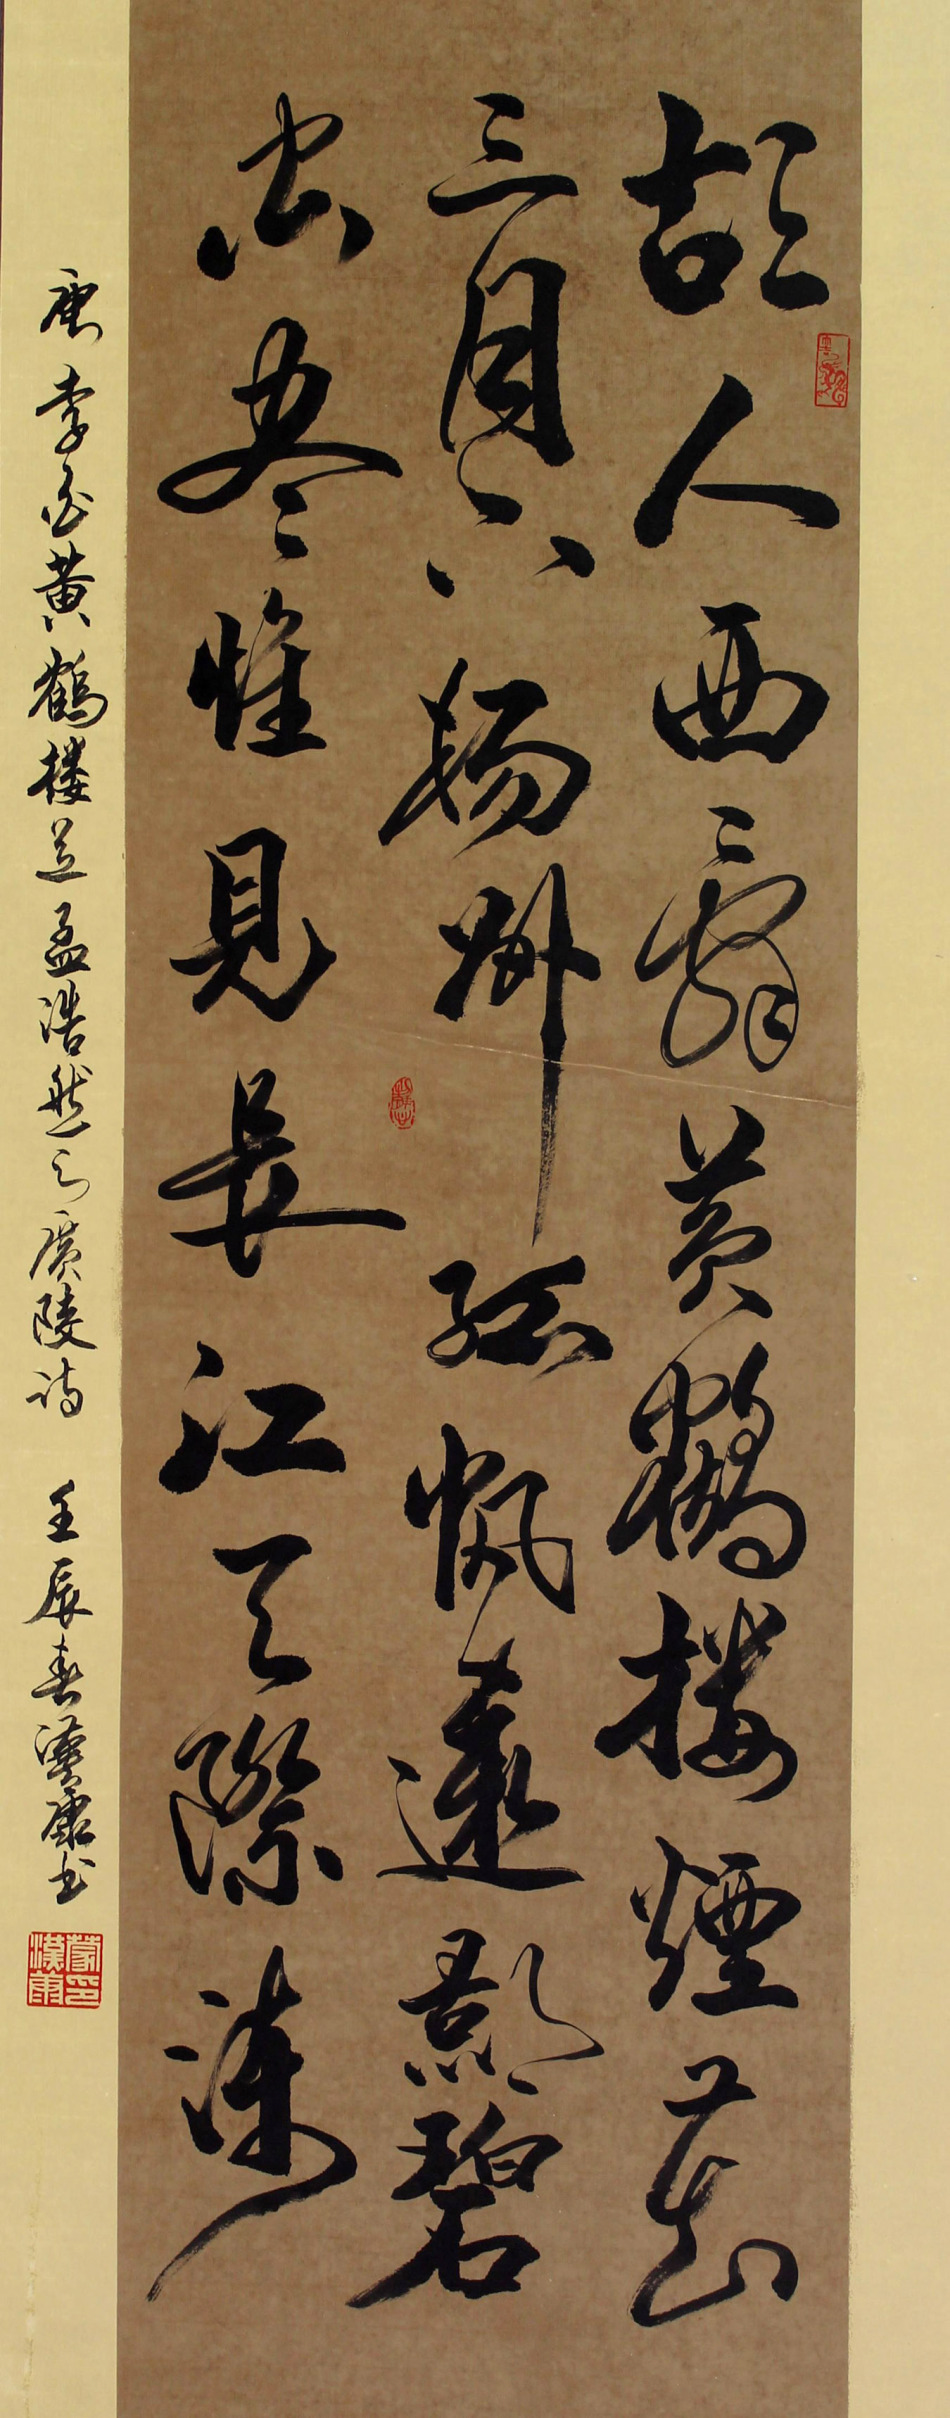 故人西辭黄鶴楼煙花
三月下揚州孤帆遠影碧
空尽惟見長江天際流
唐李白黄鶴楼送孟浩然之廣陵詩 壬辰春漢康书
蒙印漢康